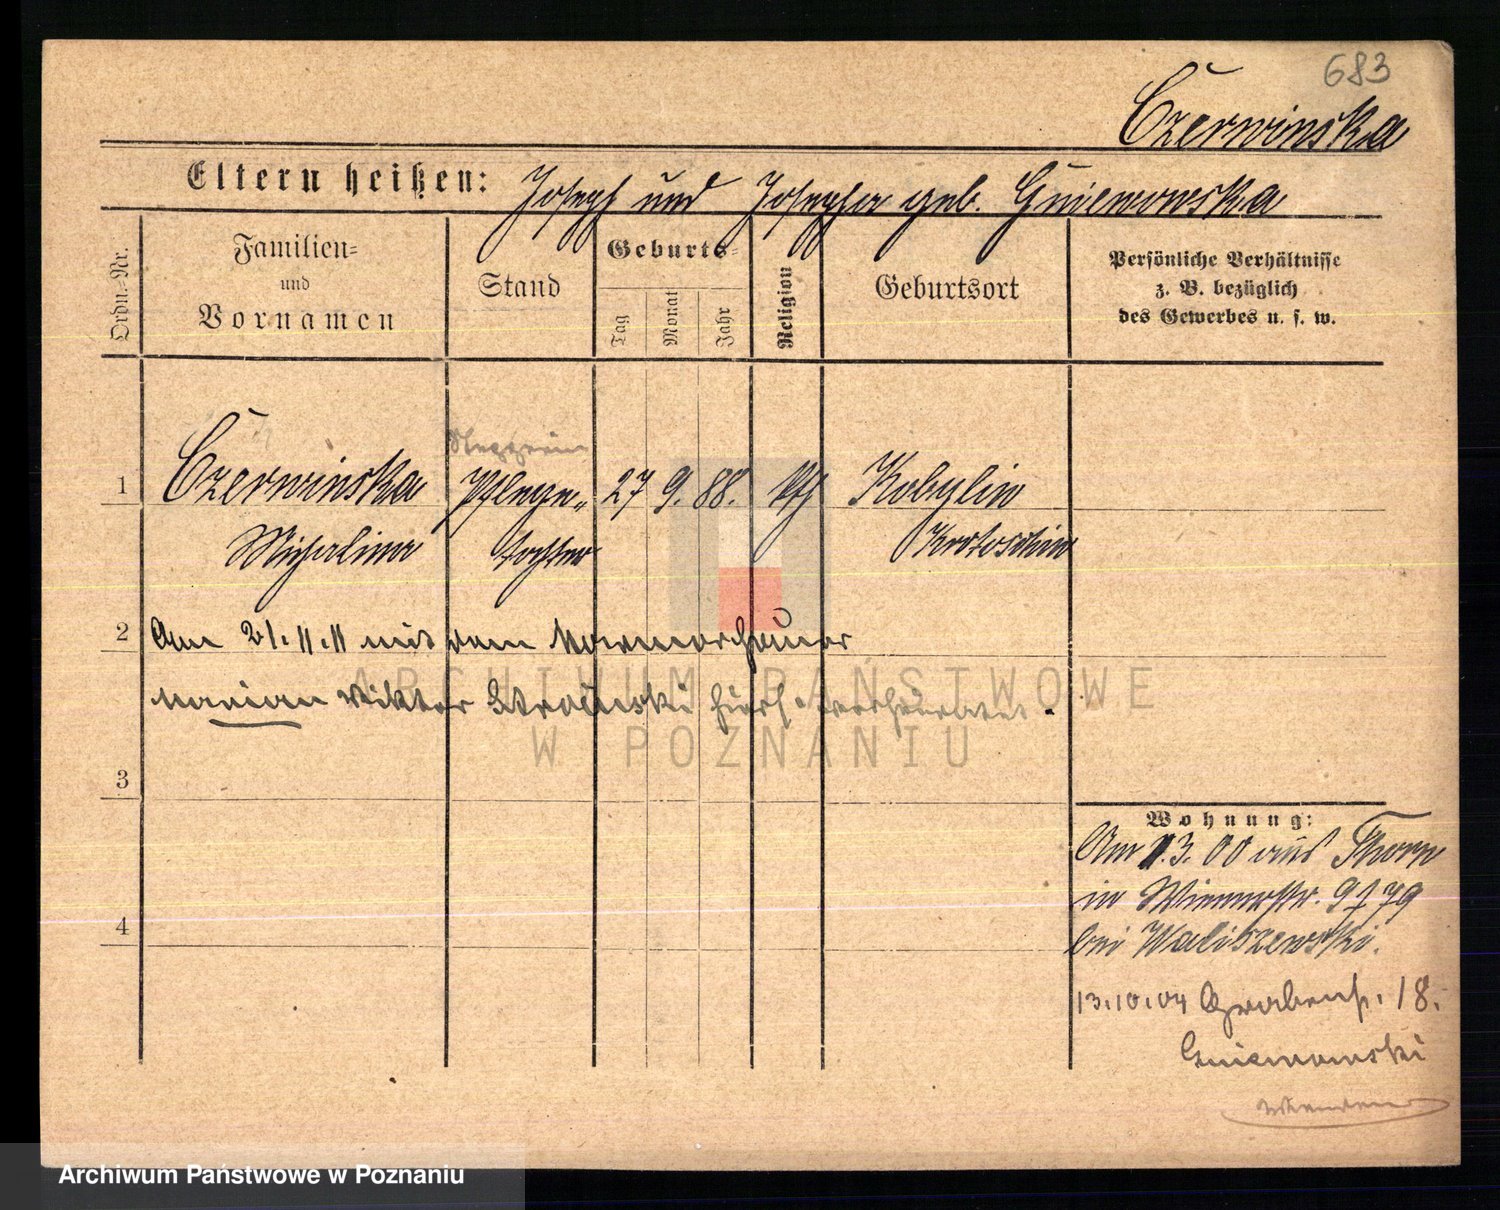 683
Czerwinska
Eltern heißen: Joseph und Josepha geb. Gniewowska
Ordn.-Nr.
Familien-
und
Vornamen
Stand
Geburts-
Tag
Monat
Jahr
Religion
Geburtsort
Persönliche Verhältnisse
z. B. bezüglich
des Gewerbes u. s. w.
1 Czerwinska Pflege- 27 9. 88. kth Kobylin
Michalina tochter Krotoschin
2 Am 21.11.11 mit dem
Marian Viktor hier verheiratet.
3
4
Wohnung:
Am 1.3.00 aus Thorn
in Wienerstr. 9 f 79
bei Waliszewski.
13.10.04 Grabenst. 18.
Gniewowski
ARCHIWUM PAŃSTWOWE
W POZNANIU
Archiwum Państwowe w Poznaniu